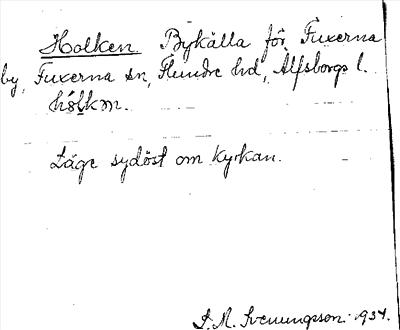 Holken Bykälla för Fuxerna
by, Fuxerna sn, Flundre hd, Älfsborgs l.
hólkɷn.
Läge sydöst om kyrkan.
S. M. Svenungsson. 1934.